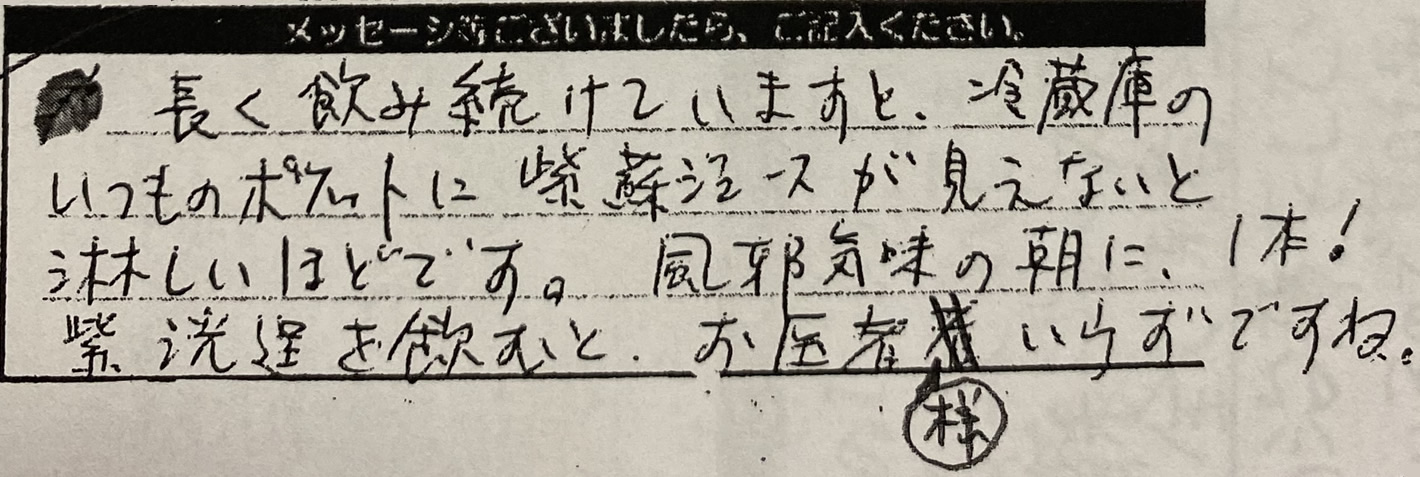 メッセージ等ございましたら、ご記入ください。
長く飲み続けていますと、冷蔵庫の
いつものポケットに紫蘇ジュースが見えないと
淋しいほどです。 風邪気味の朝に、1本!
紫 を飲むと、お医者様いらずですね。